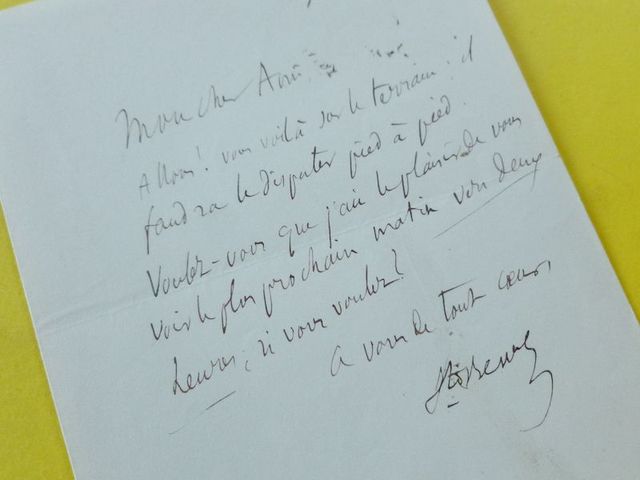 Mon cher Ami,
Allons! vous voilà sur le terrain : il
faudra le disputer pied à pied.
Voulez-vous que j'aie le plaisir de vous
voir le plus prochain matin vers deux
heures, si vous voulez?
A vous de tout cœur,
Ste Beuve